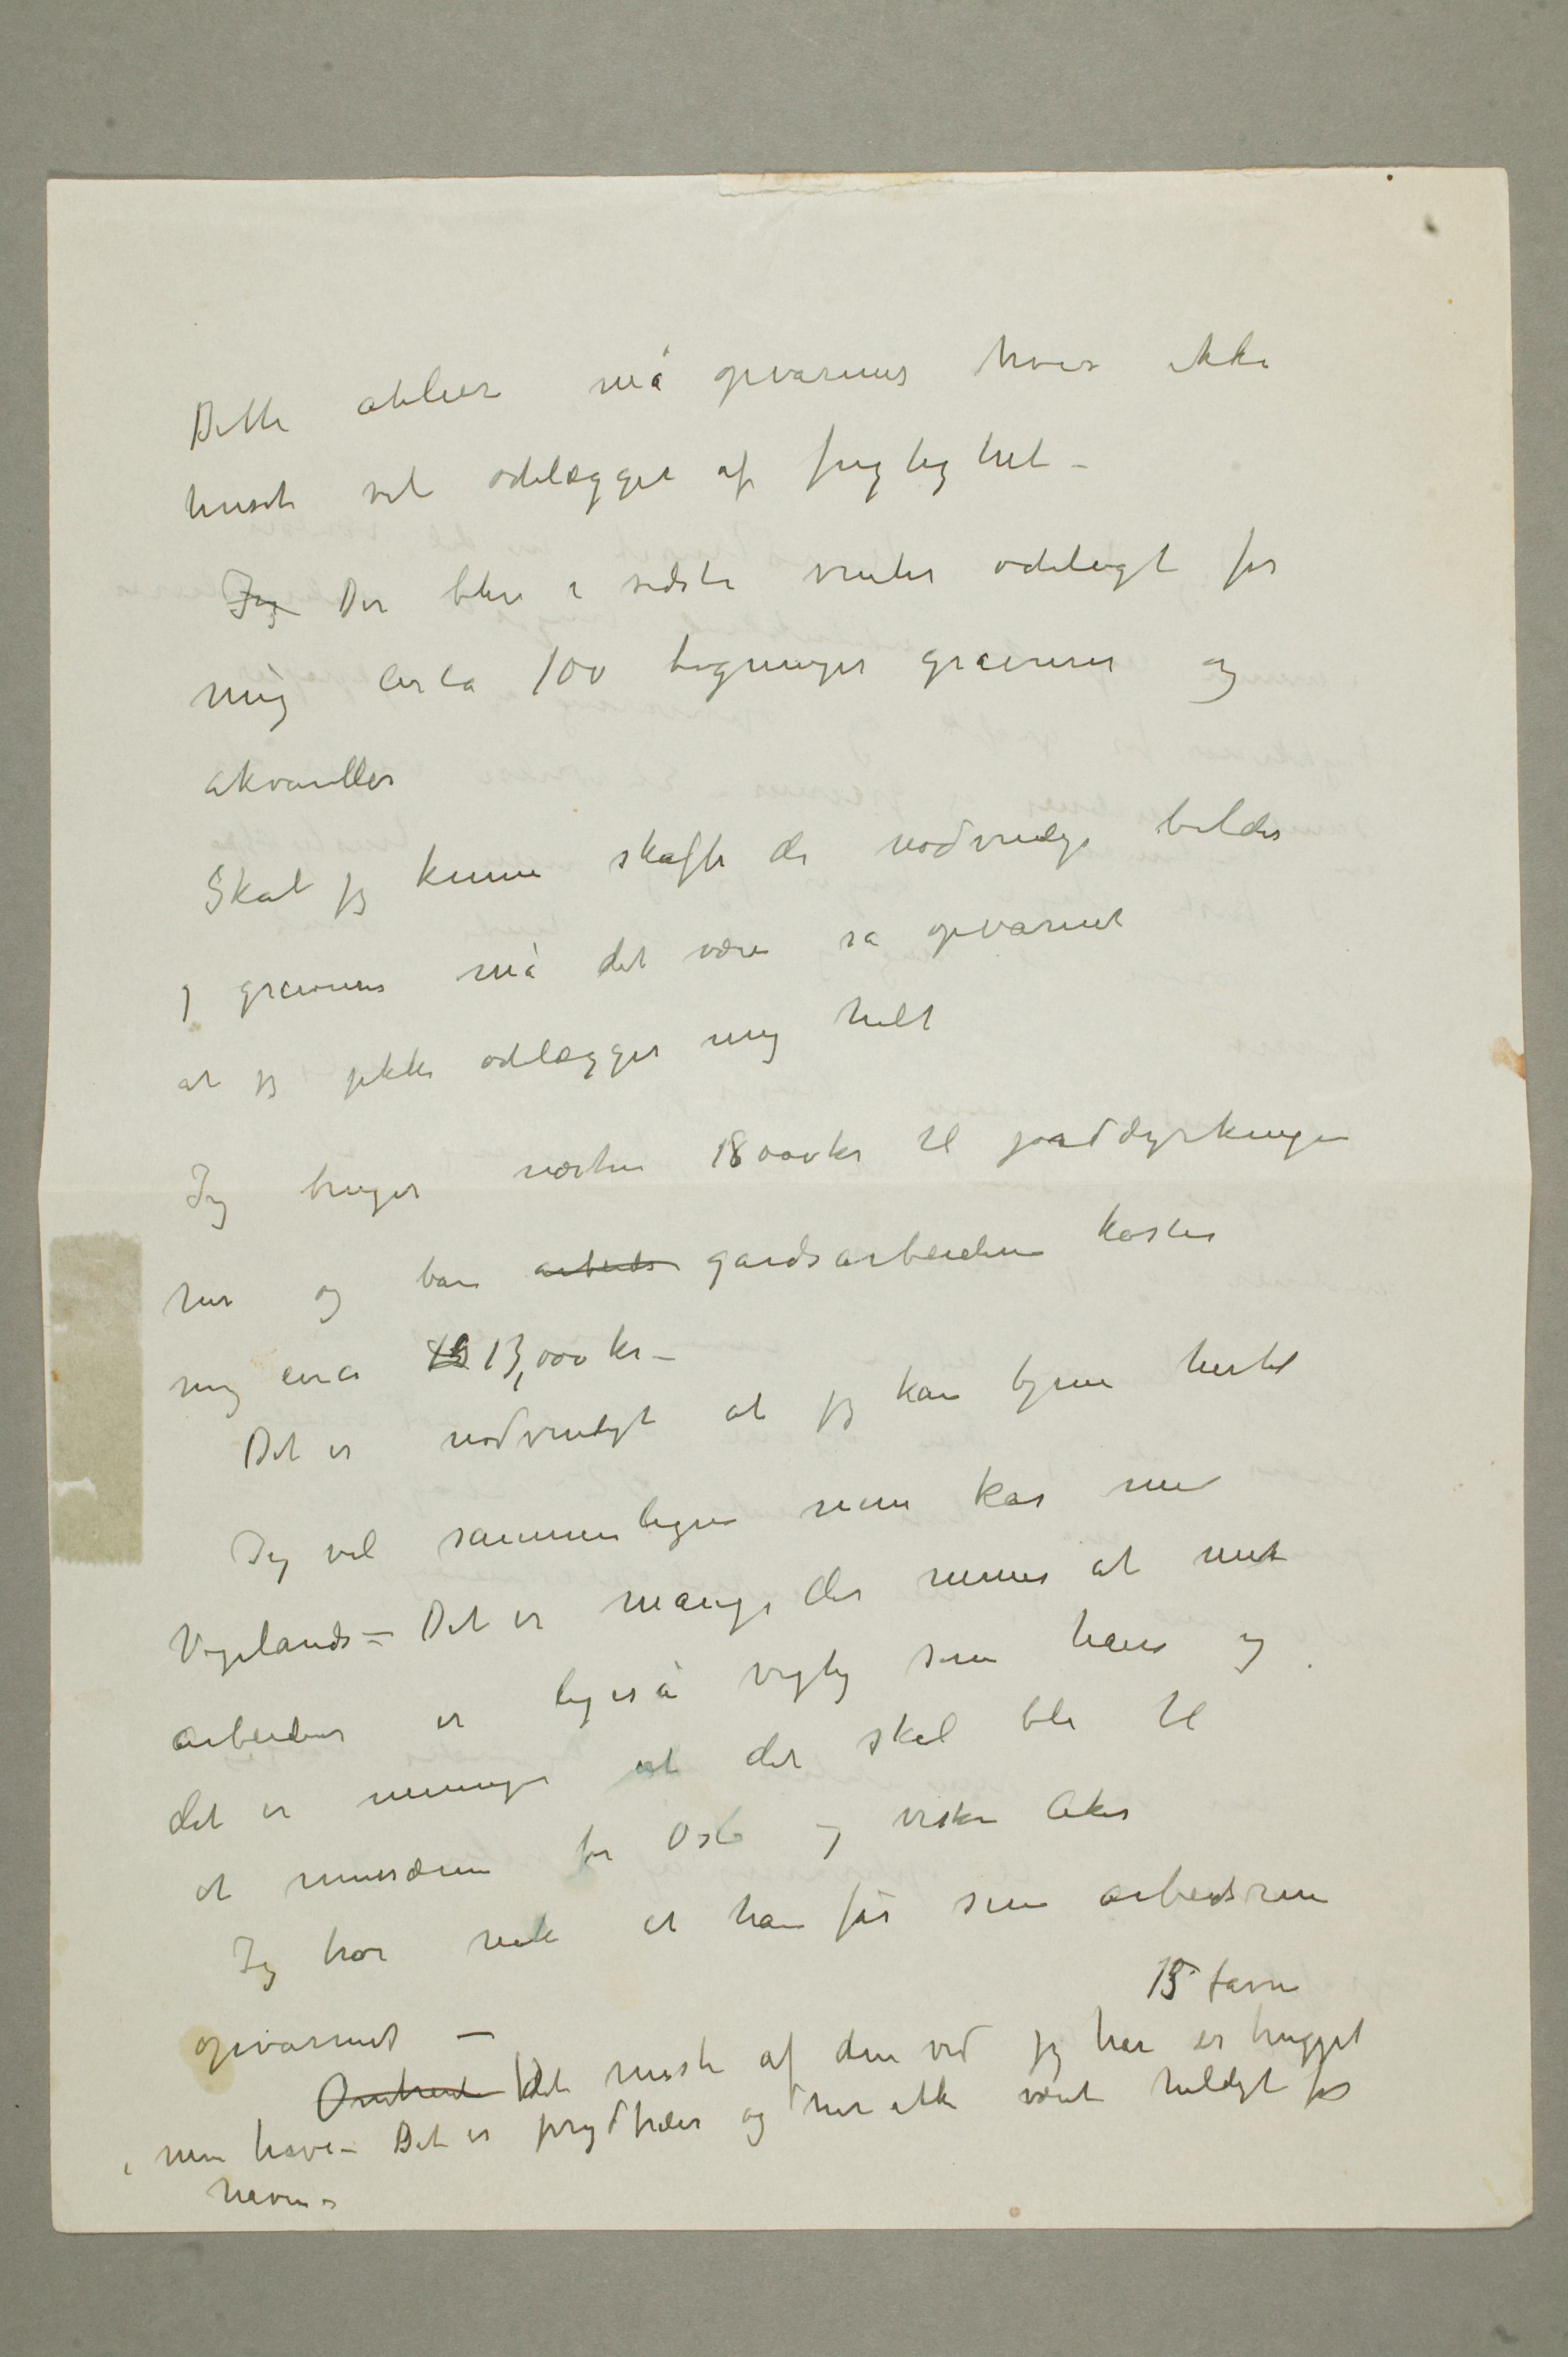 Dette atelier må opvarmes hvis ikke
huset vil ødelægges af fugtighet –
Jeg Der blev i sidste vinter ødelagt for
mig cirka 100 tegninger gravurer og
akvareller
Skal jeg kunne skaffe de nødvendige bilder
og gravurer må det være så opvarmet
at jeg ikke ødelægger mig helt
Jeg bruger næsten 18000 kr til jorddyrkningen
her og bare arbeids gårdsarbeidere koster
mig circa 13 13,000 kr –
Det er nødvendigt at jeg kan tjene hertil
Jeg vil sammenligne mine kår med
Vigelands – Det er mange der mener at mit
arbeide er ligeså vigtig som hans og
det er meningen at det skal bli til
et musæum for Oslo og visken Aker
Jeg tror nok at han får sine arbeidsrum
opvarmet –
15 favne
Omtrent Det meste af den ved jeg har er hugget
i min have – Det er prydtrær og har ikke været heldigt for
haven –